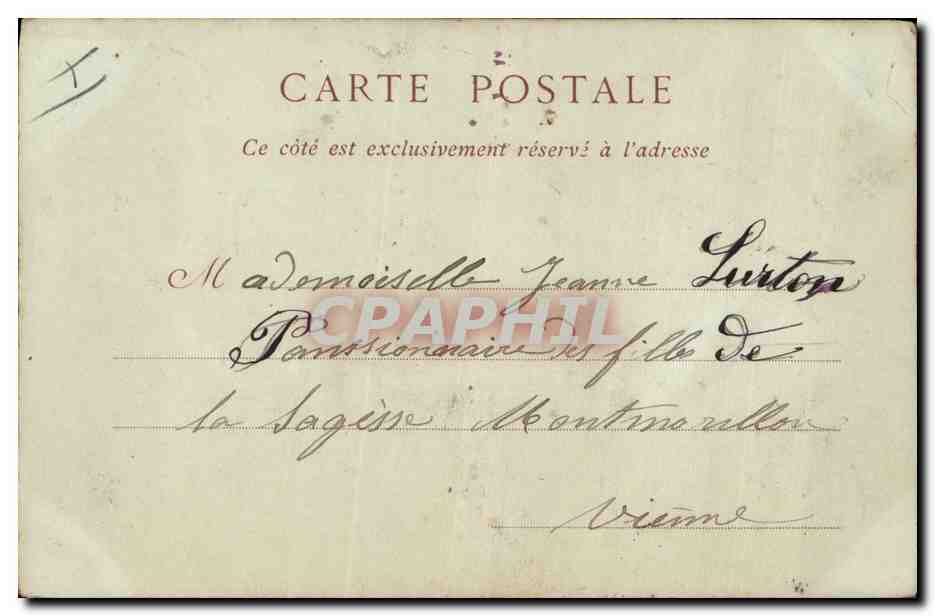 CARTE POSTALE
Ce côté est exclusivement réservé à l'adresse
Mademoiselle Jeanne Lurton
CPAPHIL
Panssionnaire des filles de
la Sagèsse Montmorillon
Vienne